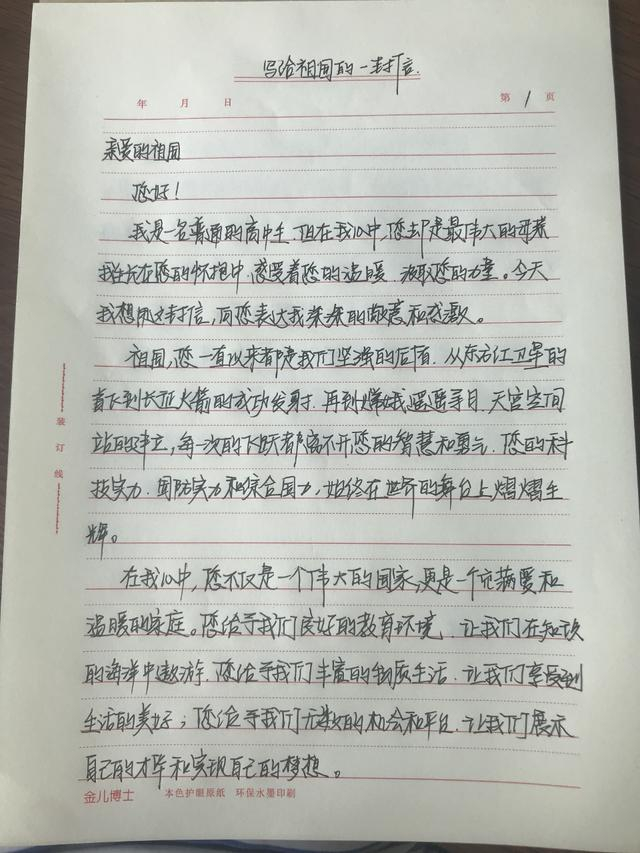 写给祖国的一封信.
年 月 日 第 1 页
亲爱的祖国
您好!
我是一名普通的高中生.但在我心中,您却是最伟大的母亲
我生长在您的怀抱中,感受着您的温暖 汲取您的力量。今天
我想用这封信,向您表达我深深的敬意和感激。
祖国,您一直以来都是我们坚强的后盾.从东方红卫星的
首飞到长征火箭的成功发射.再到嫦娥遥遥寻月.天宫空间
站的建立,每一次的飞跃都离不开您的智慧和勇气.您的科
技实力.国防实力和综合国力,始终在世界的舞台上熠熠生
辉。
在我心中,您不仅是一个伟大的国家,更是一个充满爱和
温暖的家庭。您给予我们良好的教育环境.让我们在知识
的海洋中遨游.您给予我们丰富的物质生活.让我们享受到
生活的美好;您给予我们无数的机会和平台.让我们展示
自己的才华和实现自己的梦想。
装订线
金儿博士 本色护眼原纸 环保水墨印刷